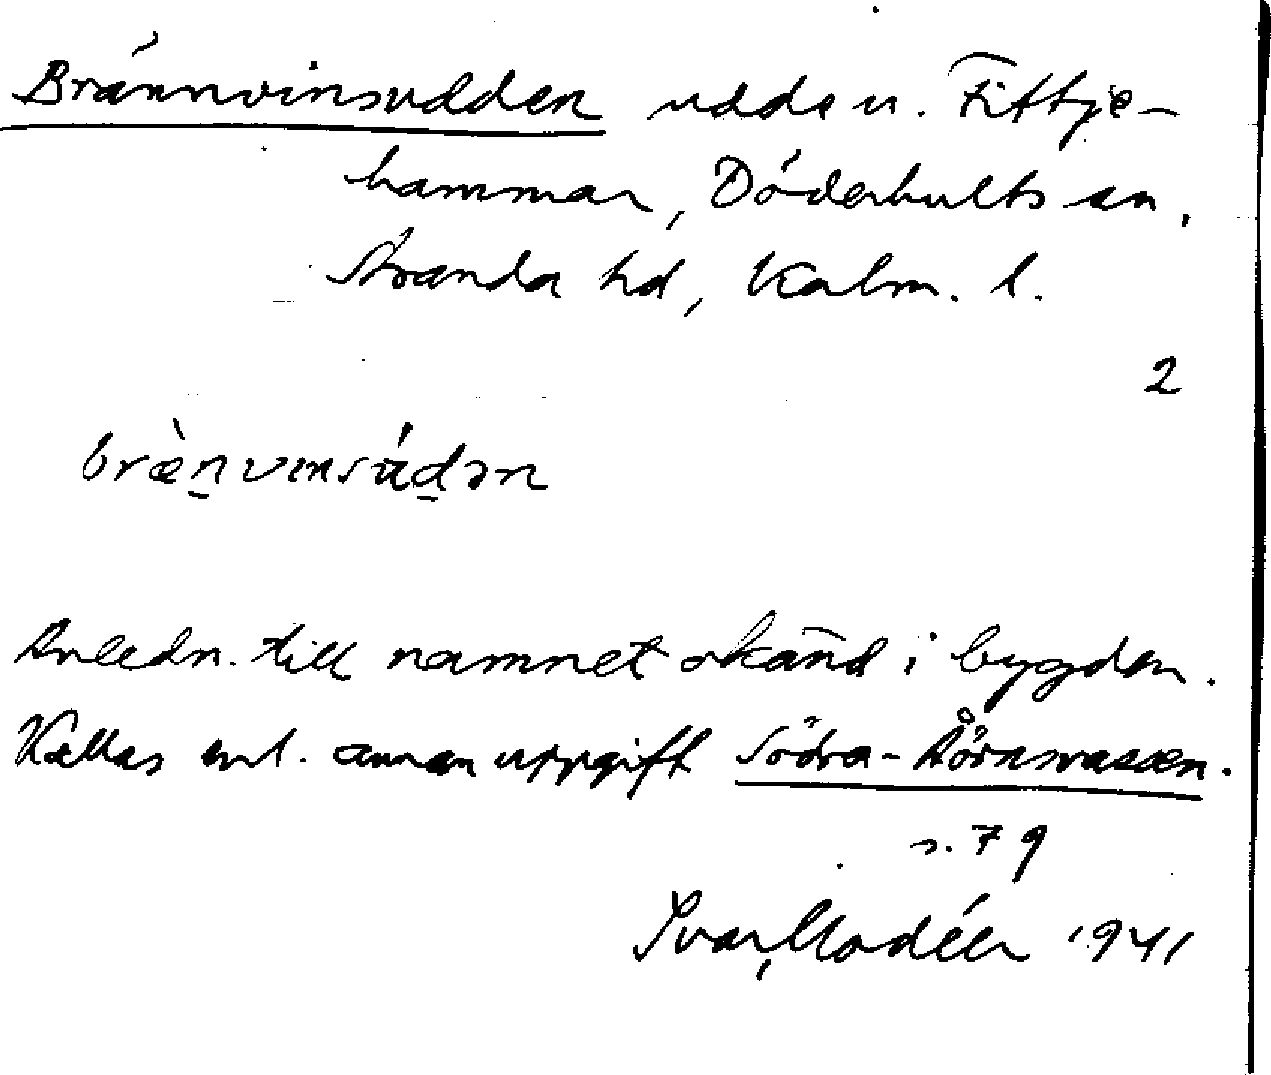 Brännvinsudden udde u. Fittje-
hammar, Döderhults sn,
Stranda hd, Kalm. l.
2
bræ̀n̠vinsúd̠ən
Anledn. till namnet okänd i bygden.
Kallas enl. annan uppgift Södra-
s. 79
Ivar Modéer 1941